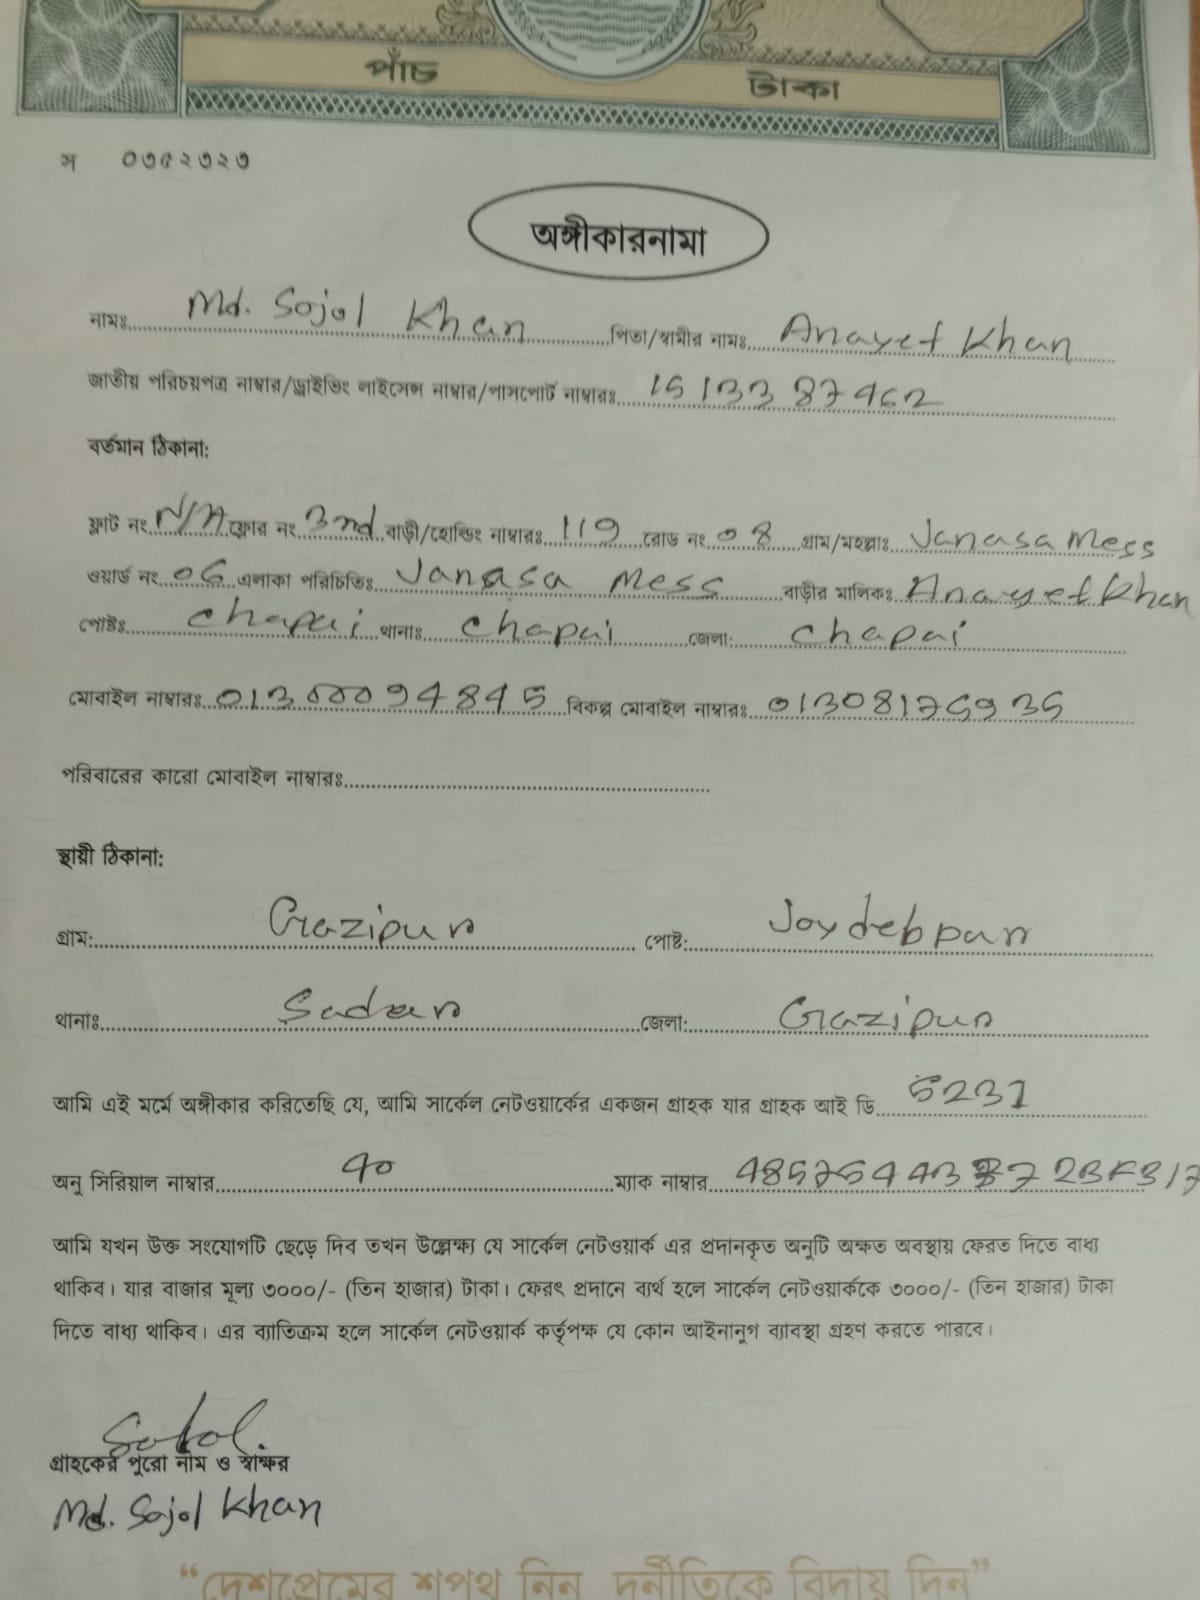 পাঁচ টাকা
স ০৩৫২৩২৩
অঙ্গীকারনামা
নামঃ Md. Sojol Khan পিতা/স্বামীর নামঃ Anayet Khan
জাতীয় পরিচয়পত্র নাম্বার/ড্রাইভিং লাইসেন্স নাম্বার/পাসপোর্ট নাম্বারঃ 1513387462
বর্তমান ঠিকানা:
ফ্লাট নং N/A ফ্লোর নং 3nd বাড়ী/হোল্ডিং নাম্বারঃ 119 রোড নং 08 গ্রাম/মহল্লাঃ Janasa Mess
ওয়ার্ড নং 06 এলাকা পরিচিতিঃ Janasa Mess বাড়ীর মালিকঃ Anayet Khan
পোষ্টঃ Chapai থানাঃ Chapai জেলা: Chapai
মোবাইল নাম্বারঃ 01300094845 বিকল্প মোবাইল নাম্বারঃ 01308175935
পরিবারের কারো মোবাইল নাম্বারঃ
স্থায়ী ঠিকানা:
গ্রাম: Gazipur পোষ্ট: Joydebpur
থানাঃ Sadar জেলা: Gazipur
আমি এই মর্মে অঙ্গীকার করিতেছি যে, আমি সার্কেল নেটওয়ার্কের একজন গ্রাহক যার গ্রাহক আই ডি 5231
অনু সিরিয়াল নাম্বার 40 ম্যাক নাম্বার
আমি যখন উক্ত সংযোগটি ছেড়ে দিব তখন উল্লেক্ষ্য যে সার্কেল নেটওয়ার্ক এর প্রদানকৃত অনুটি অক্ষত অবস্থায় ফেরত দিতে বাধ্য
থাকিব। যার বাজার মূল্য ৩০০০/- (তিন হাজার) টাকা। ফেরৎ প্রদানে ব্যর্থ হলে সার্কেল নেটওয়ার্ককে ৩০০০/- (তিন হাজার) টাকা
দিতে বাধ্য থাকিব। এর ব্যাতিক্রম হলে সার্কেল নেটওয়ার্ক কর্তৃপক্ষ যে কোন আইনানুগ ব্যাবস্থা গ্রহণ করতে পারবে।
গ্রাহকের পুরো নাম ও স্বাক্ষর
Md. Sojol Khan
“দেশপ্রেমের শপথ নিন দুর্নীতিকে বিদায় দিন”